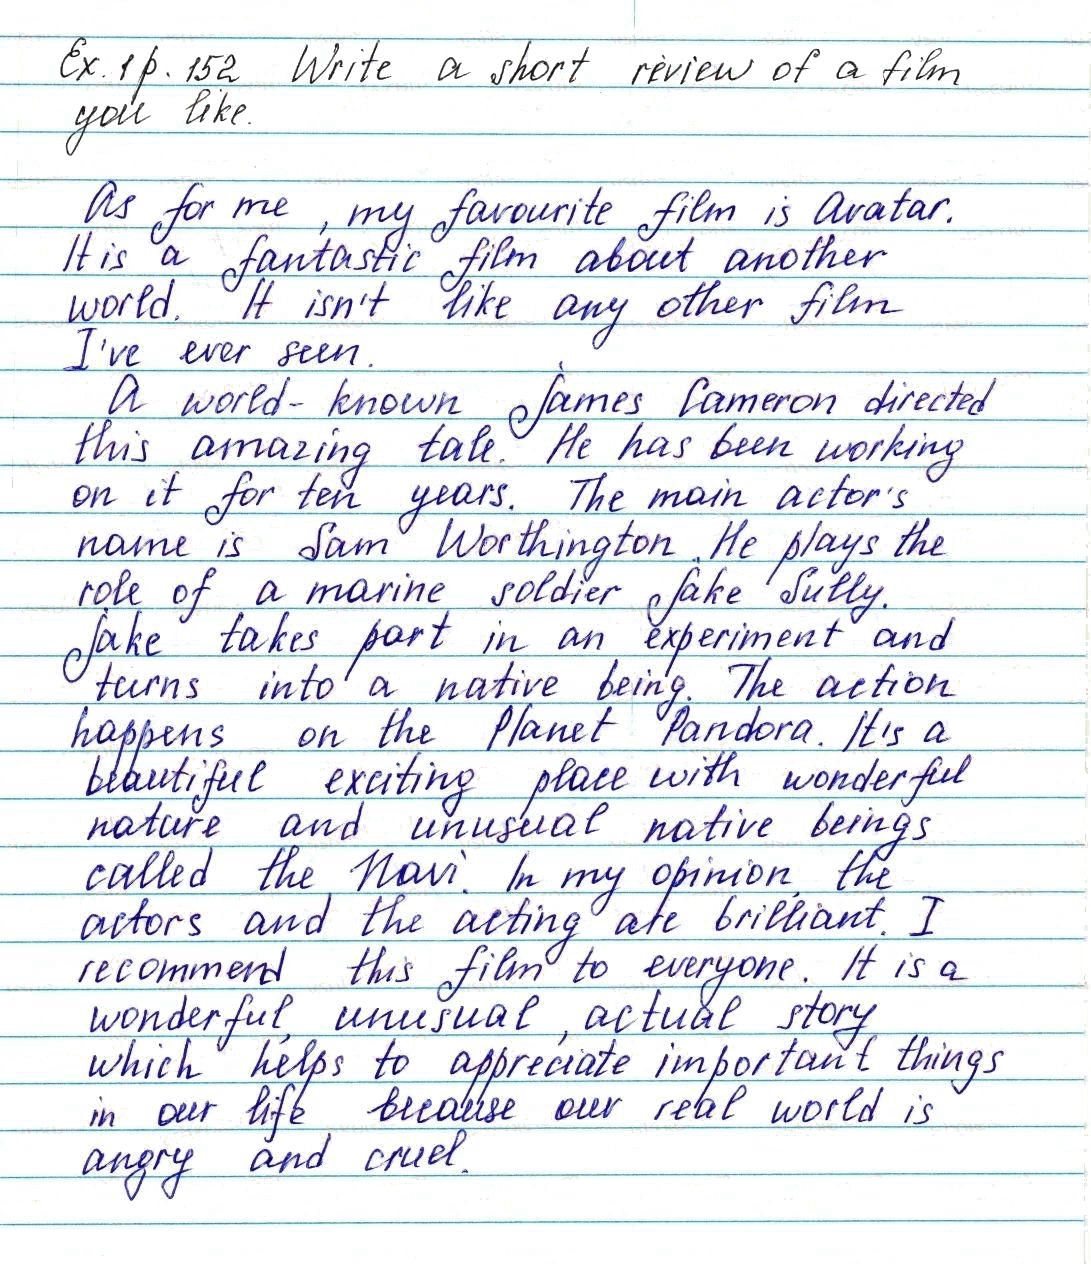 Ex. 1 p. 152 Write a short review of a film
you like.
As for me, my favourite film is Avatar.
It is a fantastic film about another
world. It isn't like any other film
I've ever seen.
A world-known James Cameron directed
this amazing tale. He has been working
on it for ten years. The main actor's
name is Sam Worthington. He plays the
role of a marine soldier Jake Sully.
Jake takes part in an experiment and
turns into a native being. The action
happens on the Planet Pandora. It's a
beautiful exciting place with wonderful
nature and unusual native beings
called the Navi. In my opinion, the
actors and the acting are brilliant. I
recommend this film to everyone. It is a
wonderful, unusual, actual story
which helps to appreciate important things
in our life because our real world is
angry and cruel.